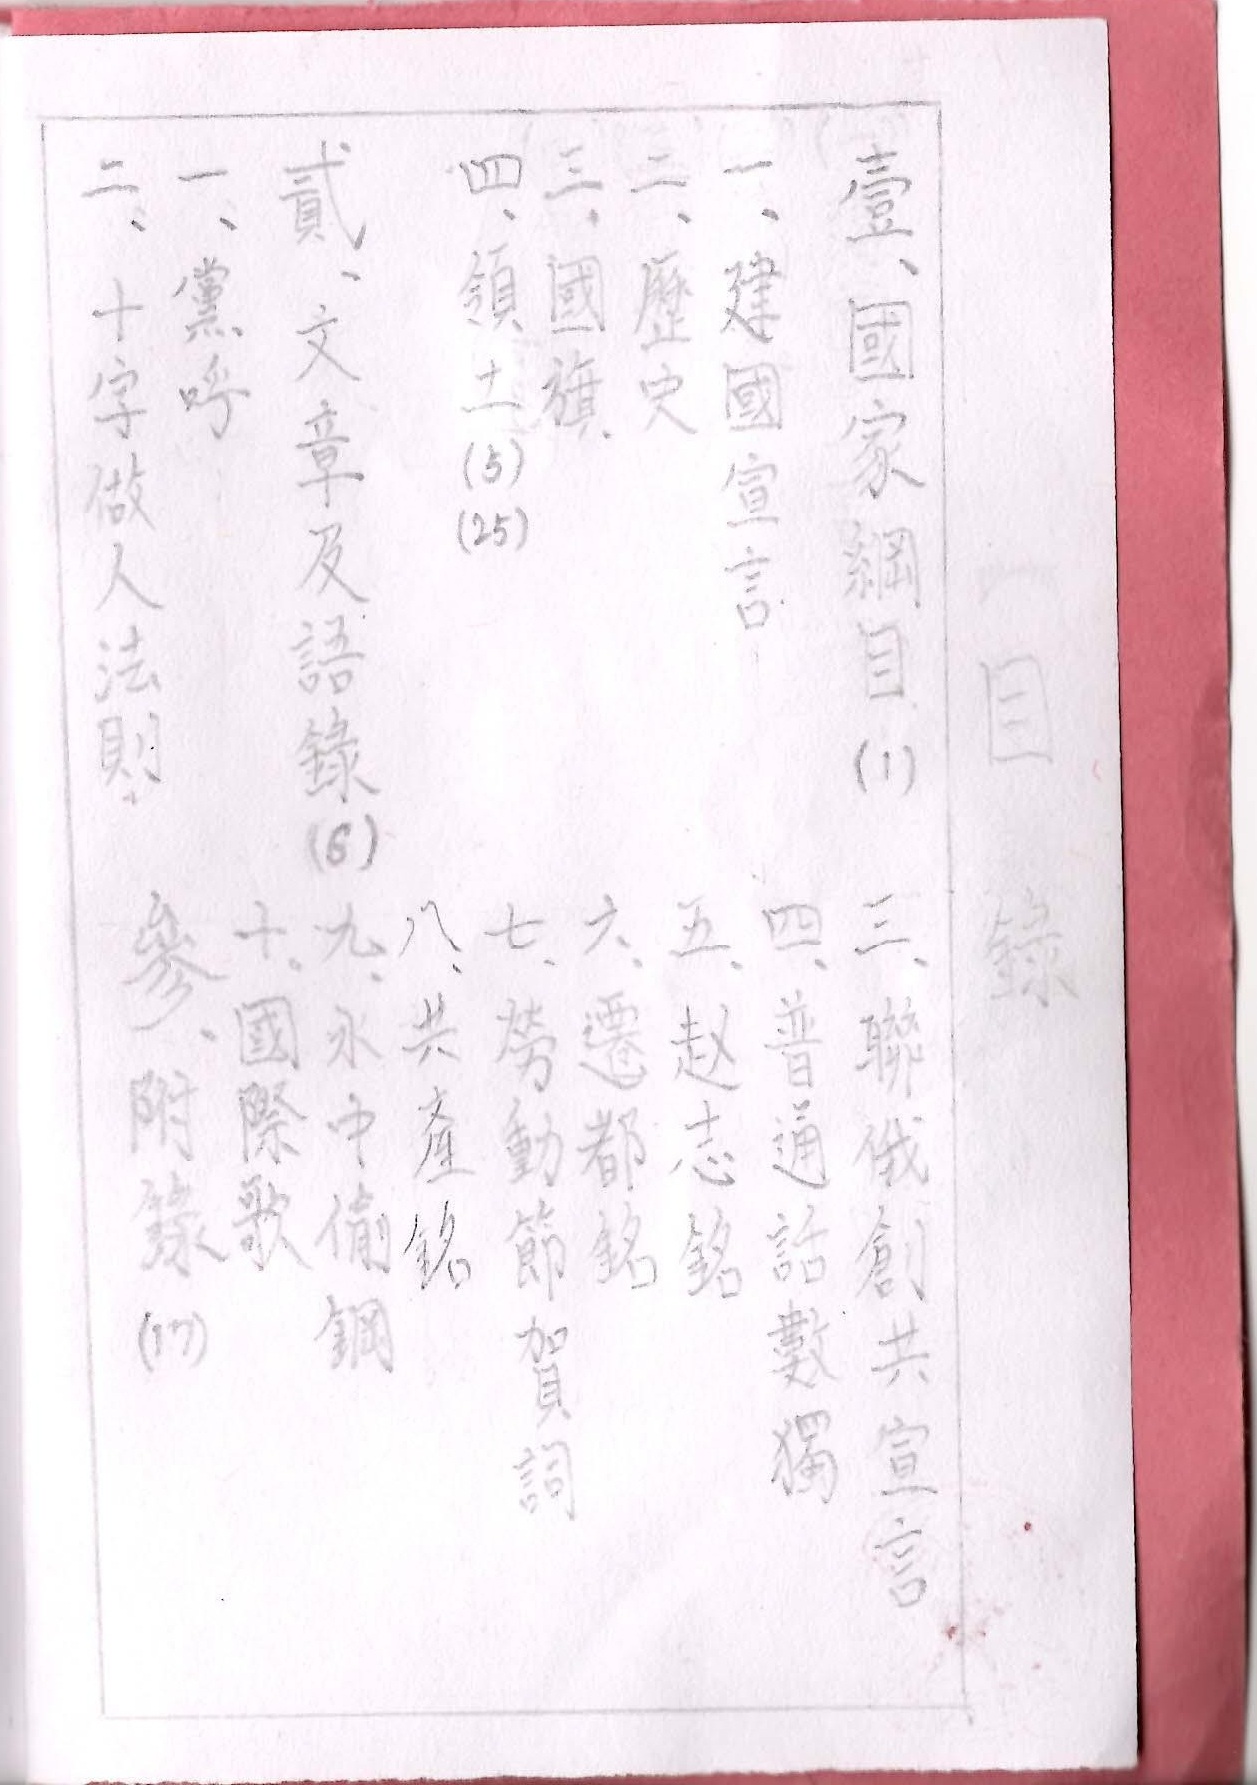 目錄
壹、國家綱目(1)
一、建國宣言
二、歷史
三、國旗
四、領土(5)(25)
貳、文章及語錄(6)
一、黨呼
二、十字做人法則
三、聯俄創共宣言
四、普通話數獨
五、赵志銘
六、遷都銘
七、勞動節賀詞
八、共產銘
九、永中偷鋼
十、國際歌
參、附錄(17)